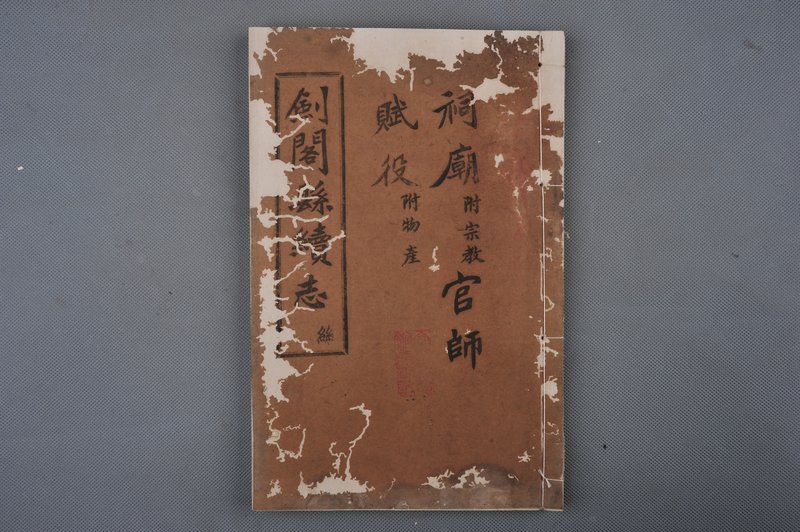 祠廟附宗教官師
賦役附物產
劍閣縣續志
絲